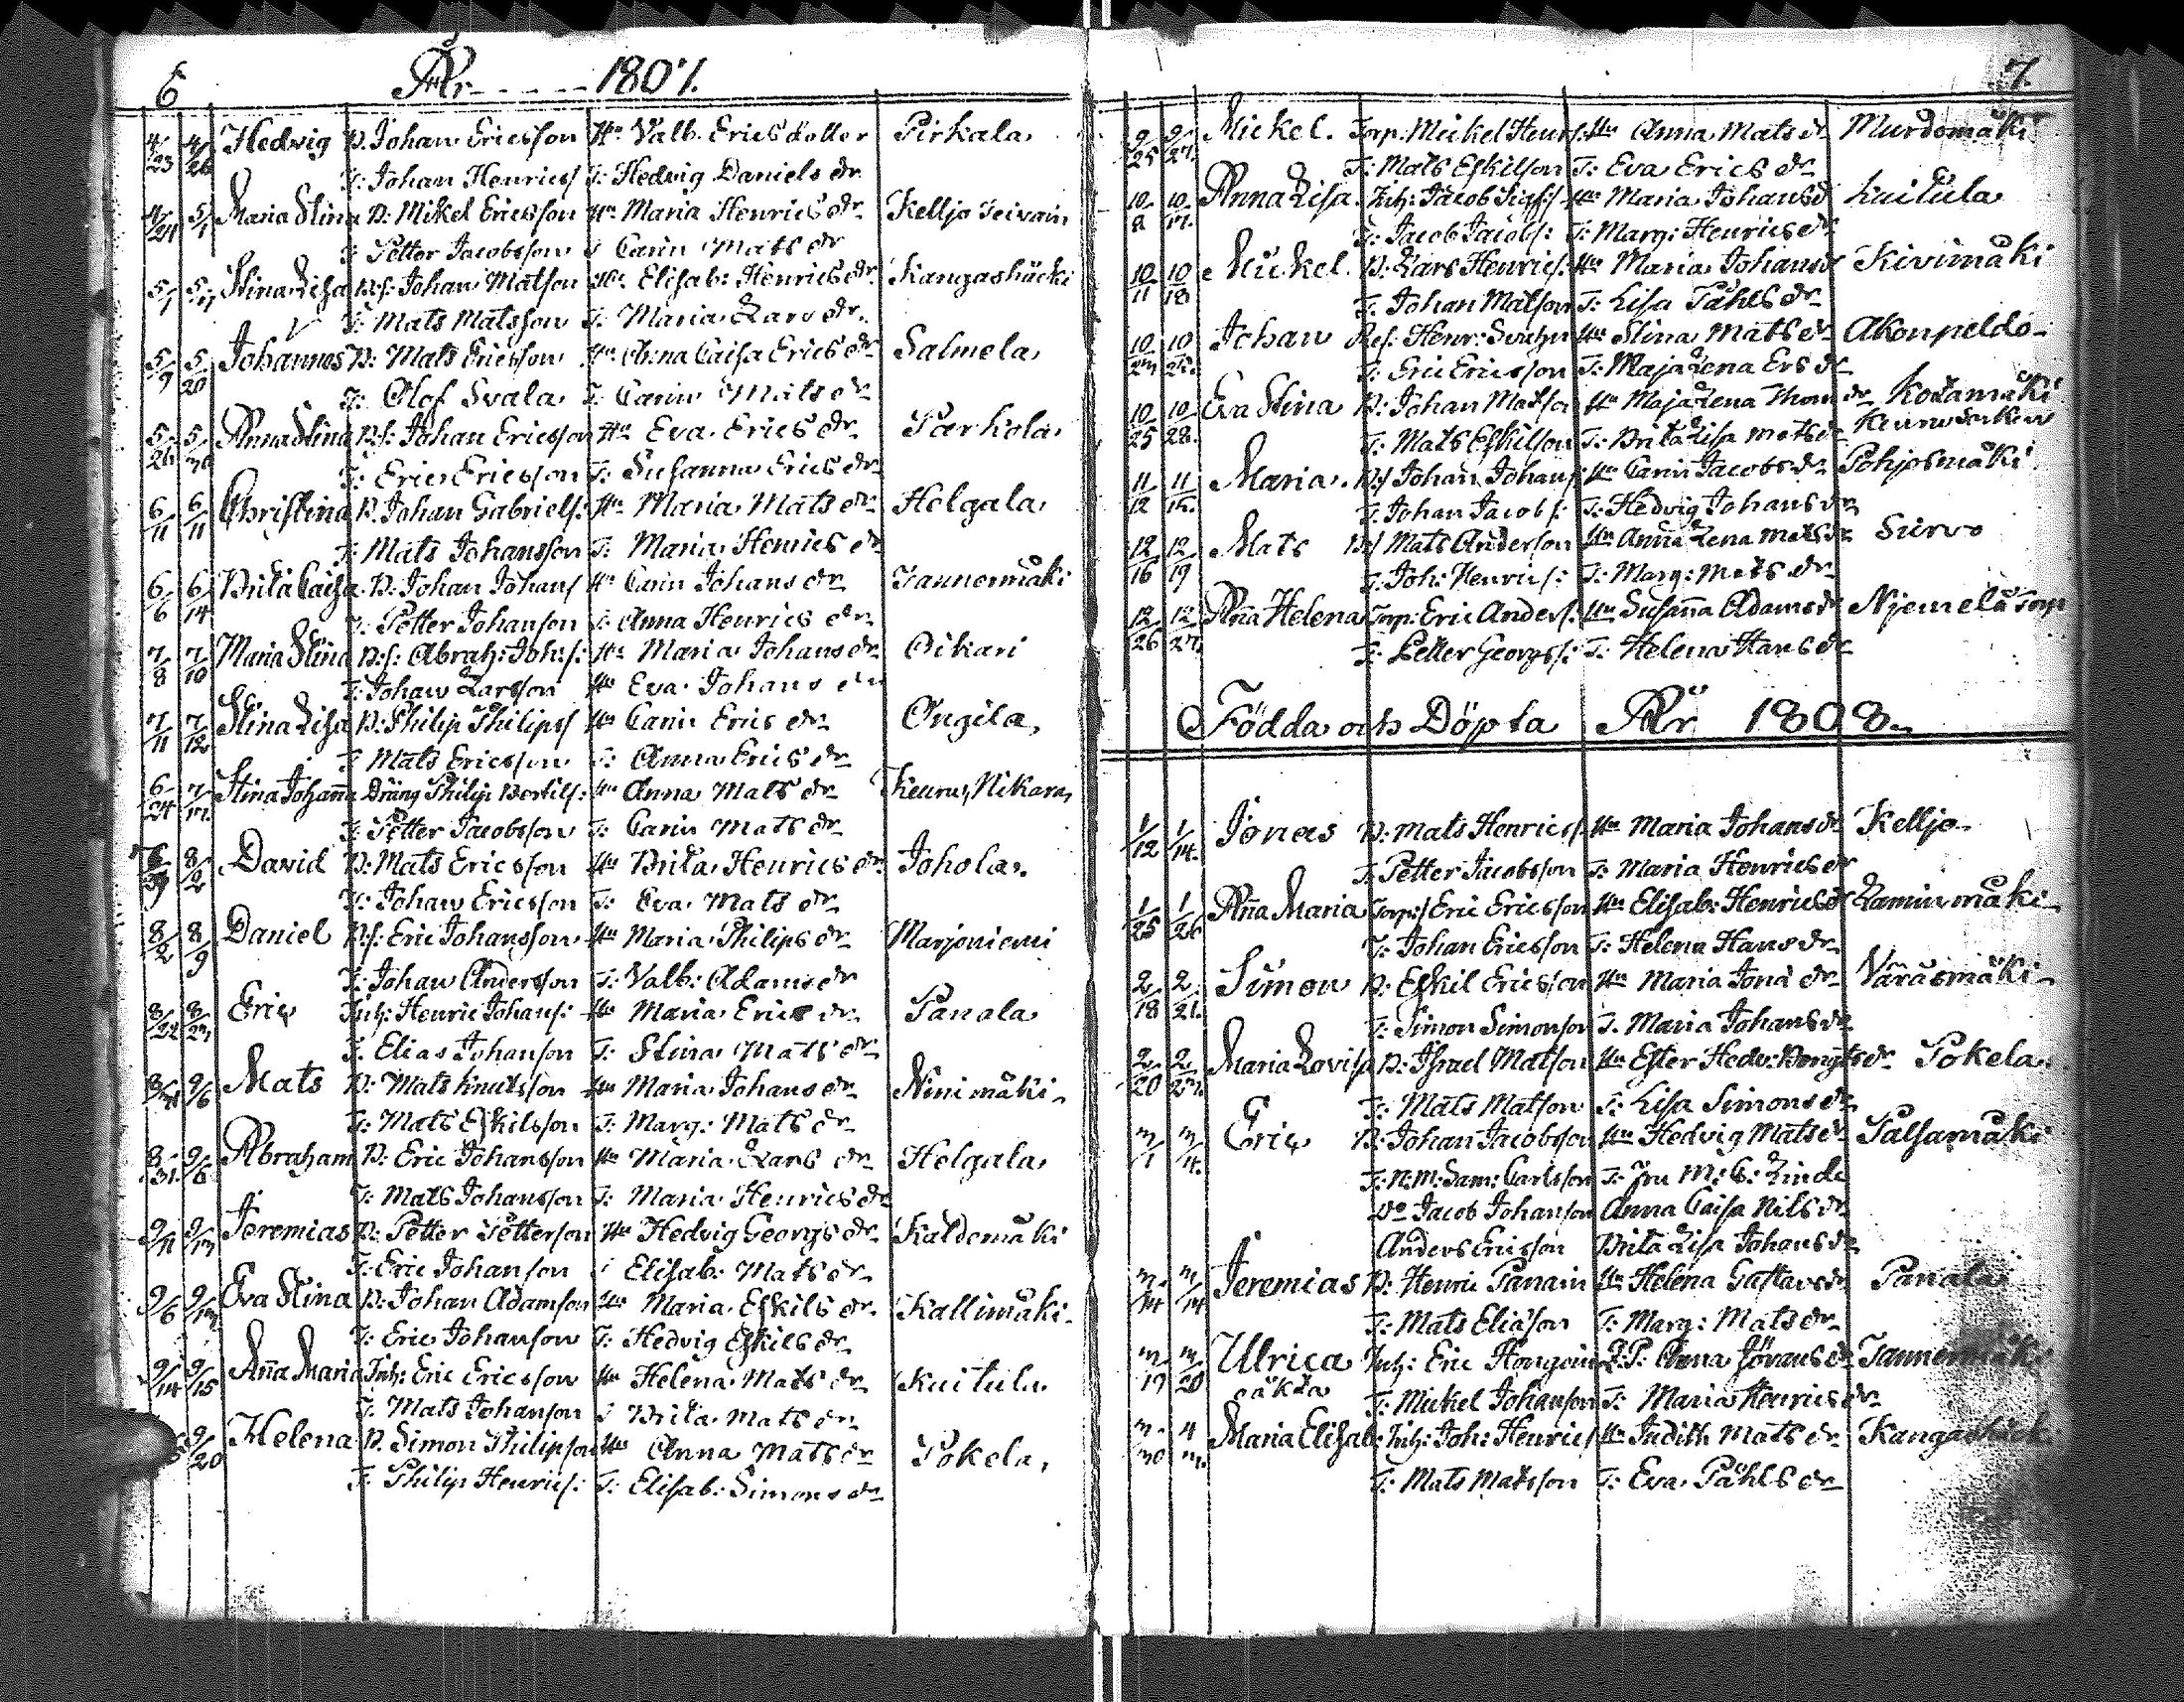 6 År - - - - - 1807.
4/23 4/26 Hedvig B. Johan Ericsson Hu Valb. Ericsdotter Pirkala
T: Johan Henrics/ T: Hedvig Daniels dr
4/24 5/1 Maria Stina B: Mikel Ericsson Hu Maria Henrics dr Kelljo
T Petter Jacobsson T Carin Mats dr
5/1 Stina Lisa B:s: Johan Matson Hu Elisab: Henrics dr Kangashäcki
T: Mats Matsson T: Maria Lars dr.
5/9 5/20 Johannes B: Mats Ericsson Hu Anna Caisa Erics dr Salmela
T: Olof Svala T: Carin Mats dr
5/26 5/30 Anna Stina B:s: Johan Ericsson Hu Eva Erics dr Parkola
T: Eric Ericsson T: Susanna Erics dr
6/11 6/11 Christina B. Johan Gabriels: Hu Maria Mats dr Helgala
T: Mats Johansson T: Maria Henrics dr
6/6 6/14 Brita Caisa B. Johan Johans/ Hu Carin Johans dr Tannermäki
T: Petter Johanson T: Anna Henrics dr
7/8 7/10 Maria Stina B:s: Abrah: Joh:s: Hu Maria Johans dr Oikari
T: Johan Larsson Hu Eva Johans dr
7/11 7/12 Stina Lisa B: Philip Philips/ Hu Carin Erics dr Ongila
T Mats Ericsson T: Anna Erics dr
6/24 7/17. Stina Johaña Dräng Philip Bertils: Hu Anna Mats dr Keuru, Nikara
T: Petter Jacobsson T: Carin Mats dr
8/2 David B: Mats Ericsson Hu Brita Henrics dr Johola.
T: Johan Ericsson T: Eva Mats dr
8/2 8/9 Daniel B:s: Eric Johansson Hu Maria Philips dr Marjoniemi
T: Johan Andersson T: Valb: Adams dr
8/22 8/23 Eric Inh: Henric Johans: Hu Maria Erics dr Panala
T. Elias Johanson T: Stina Mats dr
9/6 Mats B: Mats Knutsson Hu Maria Johans dr Ninimäki
T: Mats Eskilsson T: Marg: Mats dr
8/31. 9/6 Abraham B: Eric Johansson Hu Maria Lars dr Helgala
T: Mats Johansson T: Maria Henrics dr
9/11 9/13 Jeremias B: Petter Petterson Hu Hedvig Georgs dr Kaldemäki
T: Eric Johanson T Elisab: Mats dr
9/6 9/13 Eva Stina B: Johan Adamson Hu Maria Eskils dr Kallimäki
T: Eric Johanson T: Hedvig Eskils dr
9/14 9/15 Aña Maria Inh: Eric Ericsson Hu Helena Mats dr Kuitula
T. Mats Johanson T Brita Mats dr
9/20 Helena B. Simon Philipson Hu Anna Mats dr Pokela
T: Philip Henrics: T: Elisab: Simons dr
7.
9/25 9/27. Mickel. Torp: Mickel Henrs: Hu Anna Mats dr Murdomäki
T: Mats Eskilson T: Eva Erics dr
10/8 10/17. Anna Lisa Inh: Jacob Sigf:s/ Hu Maria Johans dr Kuitula
T: Jacob Jacobs: T: Marg: Henrics dr
10/11 10/18 Mickel. B: Lars Henrics: Hu Maria Johans dr Kivimäki
T: Johan Matson T: Lisa Påhls dr
10/23 10/25. Johan Res: Henr: Svahn Hu Stina Mats dr Akonpeldo
T: Eric Ericsson T: Maja Lena Ers dr
10/25 10/28. Eva Stina B: Johan Matson Hu Maja Lena Thom dr Kotamäki
T: Mats Eskilson T: Brita Lisa Mats dr
11/12 11/15. Maria. B:s/ Johan Johans/ Hu Carin Jacobs dr Pohjosmäki
T. Johan Jacobs: T: Hedvig Johans dr
12/16 12/19 Mats B:s/ Mats Anderson Hu Anna Lena Mats dr Survo
T. Joh: Henrics: T: Marg: Mats dr
12/26 12/27. Aña Helena Torp: Eric Anders: Hu Susaña Adams dr Njemelä Torp
T: Petter Georgs: T: Helena Hans dr
Födda och Döpta År 1808.
1/12 1/14. Jonas B: Mats Henrics/ Hu Maria Johans dr Kelljo
T: Petter Jacobsson T: Maria Henrics dr
1/25 1/26 Aña Maria Torp:s/ Eric Ericsson Hu Elisab: Henrics dr Laminmäki
T: Johan Ericsson T: Helena Hans dr
2/18 2/21. Simon B: Eskil Ericsson Hu Maria Jona dr Väräsmäki
T: Simon Simonson T. Maria Johans dr
2/20 2/27. Maria Lovisa B: Israel Matson Hu Ester Hedv: Bengts dr Pokela
T: Mats Matson T: Lisa Simons dr
3/1 3/4. Eric B: Johan Jacobsson Hu Hedvig Mats dr Palsamäki
T: N: M: Sam: Carlsson T: Fru M: C: Linde
Do Jacob Johanson Anna Caisa Nils dr
Anders Ericsson Brita Lisa Johans dr
3/14 3/14 Jeremias B: Henric Panain Hu Helena Gustavs dr Panala
T: Mats Eliason T: Marg: Mats dr
3/19 3/20 Ulrica Inh: Eric Hongoin Q: P: Anna Jörans dr Tannermäki
oäkta T: Mickel Johanson T: Maria Henrics dr
3/30 4/3. Maria Elisab: Inh: Joh: Henrics/ Hu Judith Mats dr Kangashäck
T: Mats Matsson T: Eva Påhls dr